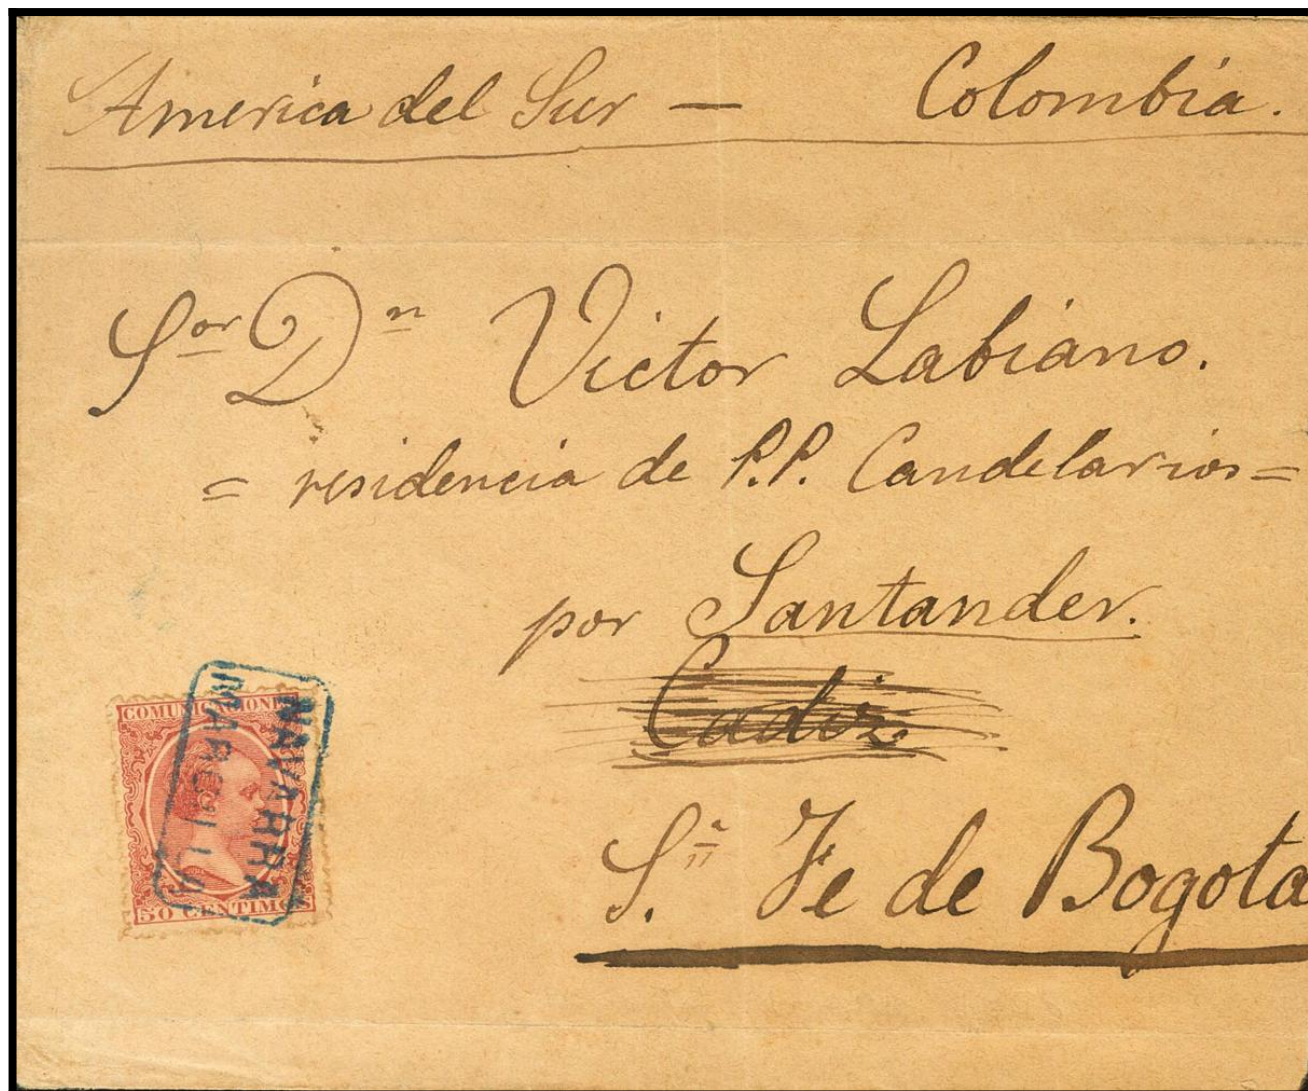 America del Sur — Colombia.
Sor Dn Victor Labiano.
= residencia de P.P. Candelarios =
por Santander.
Cadiz
S.ta Fe de Bogota
COMUNICACIONES
NAVARRA
MARCILLA
50 CENTIMOS